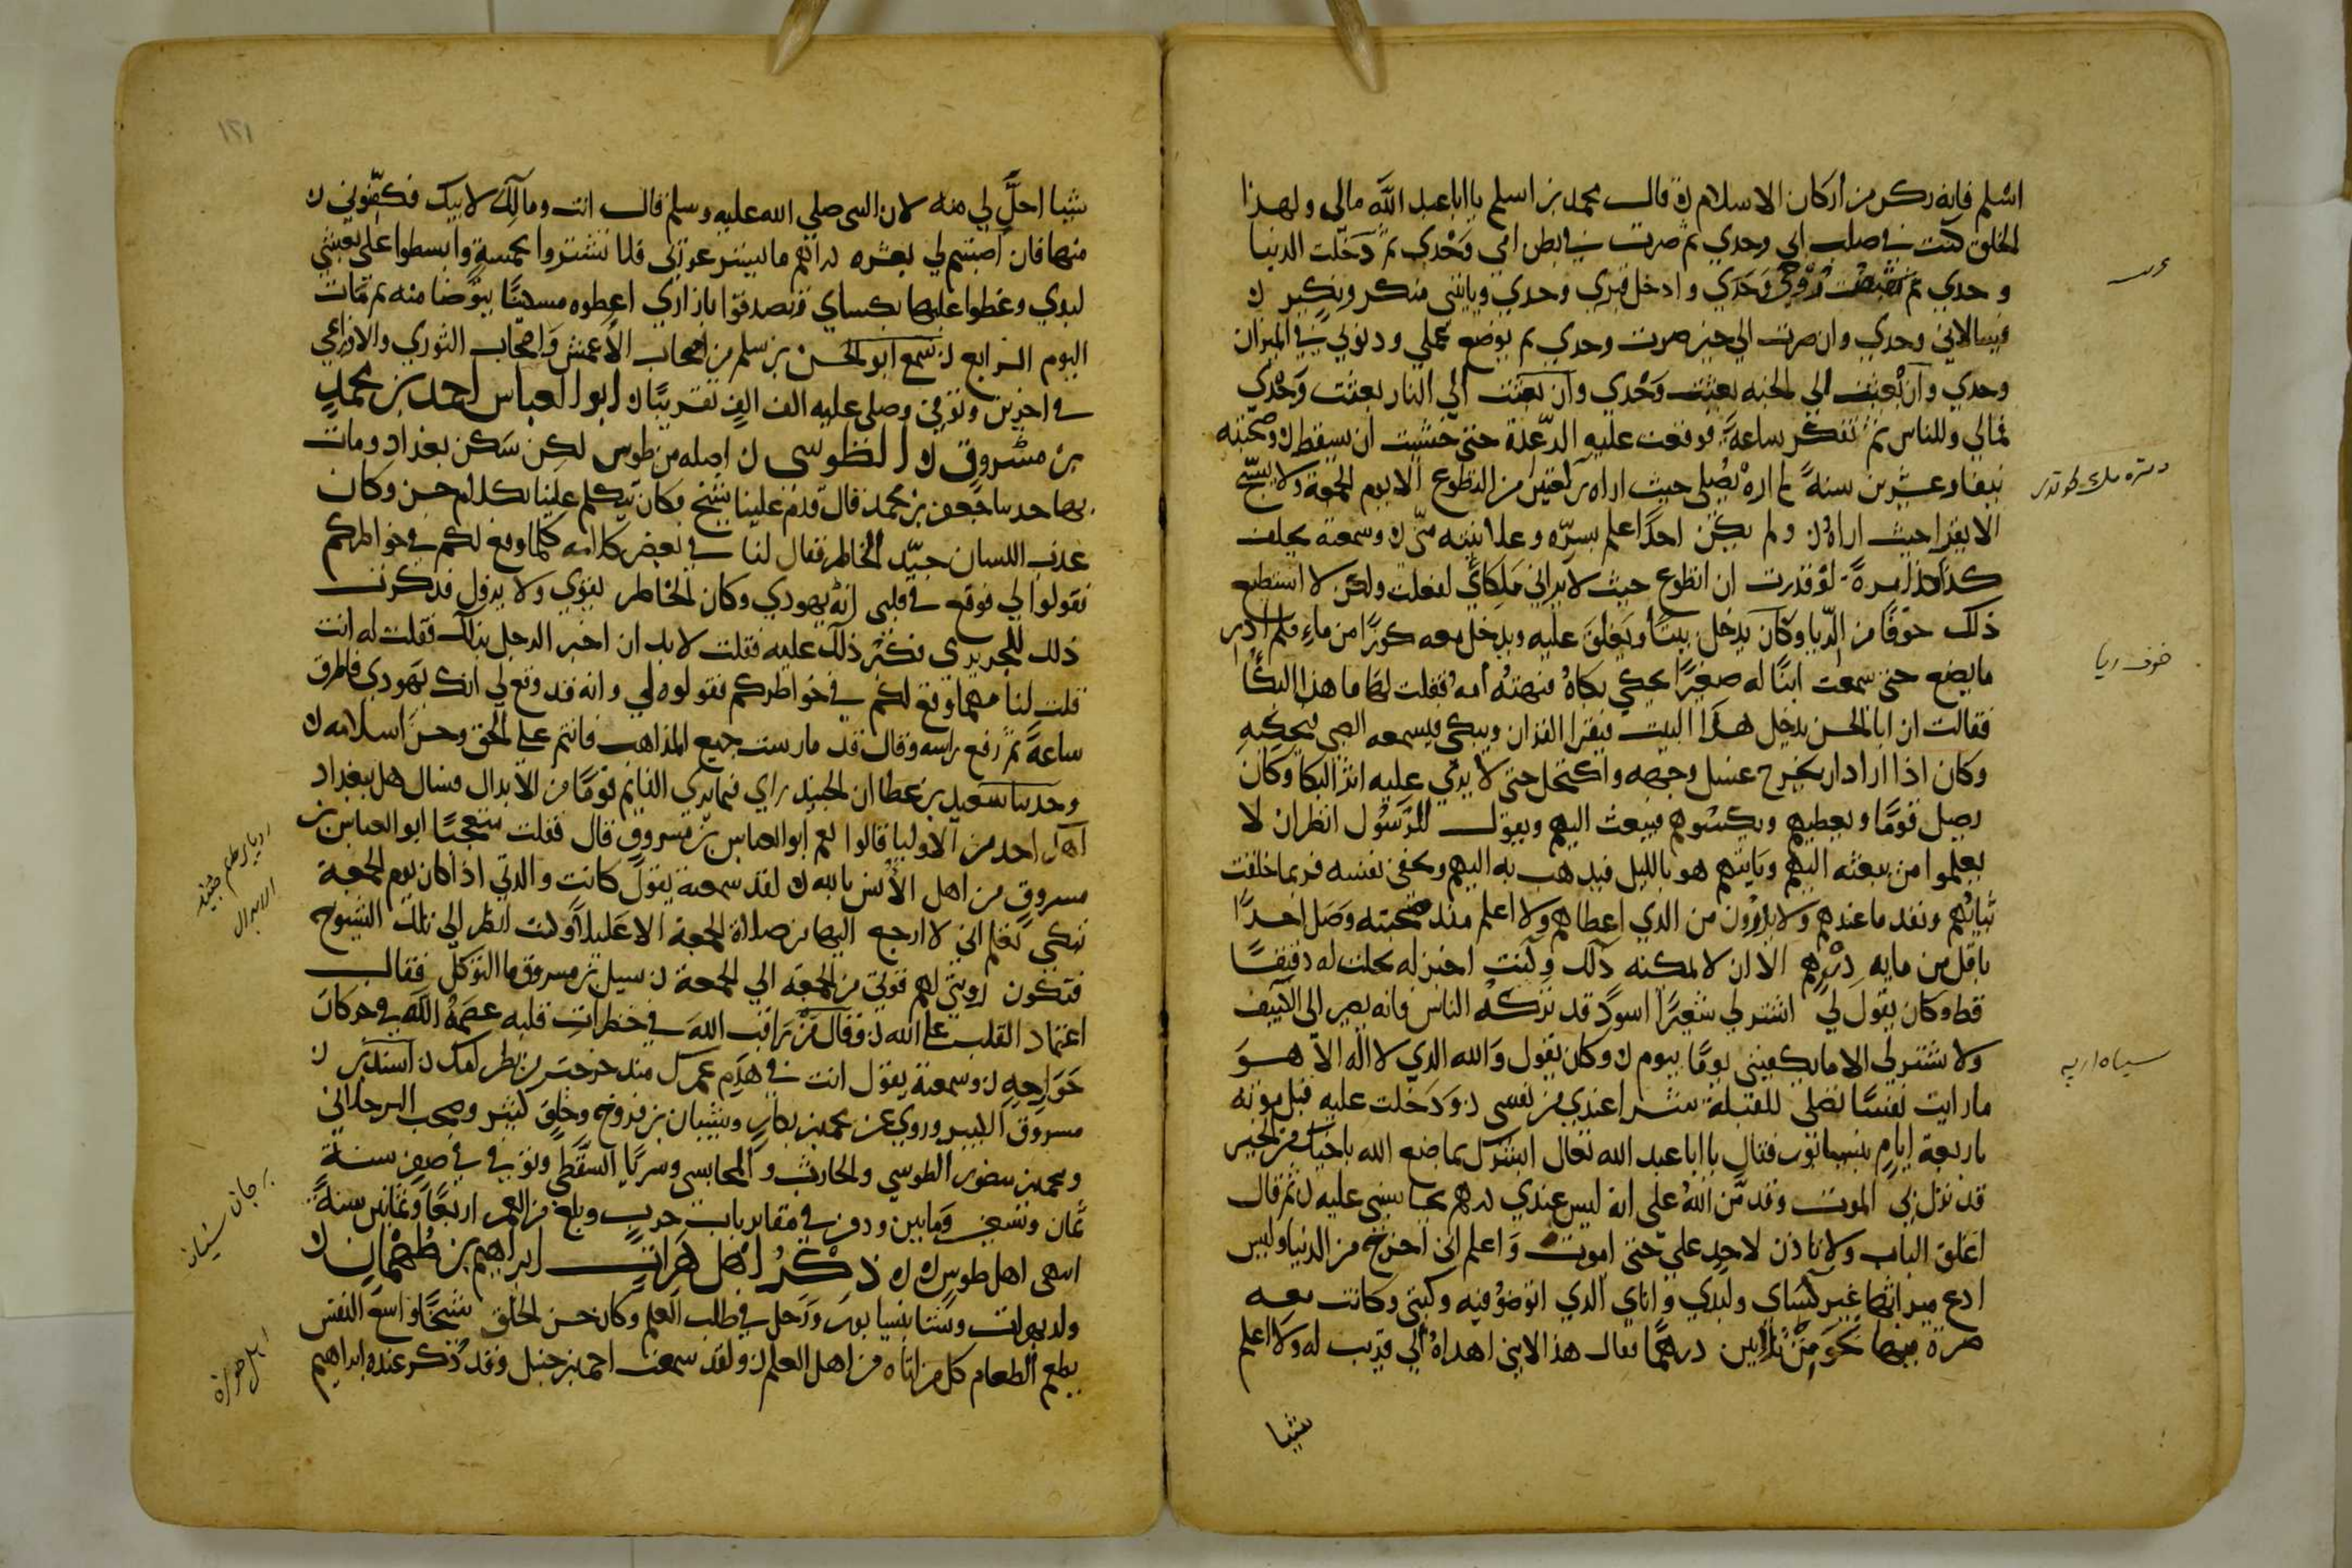 اسلم فانه ركن من اركان الاسلام ن قال محمد بن اسلم يا ابا عبد الله مالي ولهذا
الخلق كنت في صلب ابي وحدي ثم صرت في بطن امي وحدي ثم دخلت الدنيا
وحدي ثم تقبض روحي وحدي وادخل قبري وحدي وياتيني منكر ونكير ن
فيسالاني وحدي وان صرت الي خير صرت وحدي ثم يوضع عملي وذنوبي في الميزان
وحدي وان بعثت الي الجنه بعثت وحدي وان بعثت الي النار بعثت وحدي
فمالي وللناس ثم تفكر ساعة فوقعت عليه الرعدة حتي خشيت ان يسقط ن وصحبته
نيفا وعشرين سنة لم اره يصلي حيث اراه ركعتين من التطوع الا يوم الجمعة ولا يسبح
ولا يقرا حيث اراه ن ولم يكن احدا اعلم بسره وعلانيته مني ن وسمعته يحلف
كذا كذا مرة لو قدرت ان اتطوع حيث لا يراني ملكاي لفعلت ولكن لا استطيع
ذلك خوفا من الريا وكان يدخل بيتا ويغلق عليه ويدخل معه كوزا من ماء فلم ادر
ما يصنع حتي سمعت ابنا له صغيرا يحكي بكاه فنهته امه فقلت لها ما هذا البكا
فقالت ان ابا الحسن يدخل هذا البيت فيقرا القران ويبكي فيسمعه الصبي فيحكيه
وكان اذا اراد ان يخرج غسل وجهه واكتحل حتي لا يري عليه اثر البكا وكان
يصل قوما ويعطيهم ويكسوهم فيبعث اليهم ويقول للرسول انظر ان لا
يعلموا من بعثه اليهم وياتيهم هو بالليل فيذهب به اليهم ويخفي نفسه فربما خلقت
ثيابهم ونفد ما عندهم ولا يدرون من الذي اعطاهم ولا اعلم منذ صحبته وصل احدا
باقل من مايه درهم الا ان لا يمكنه ذلك وكنت اخبز له فما نخلت له دقيقا
قط وكان يقول لي اشتر لي شعيرا اسود قد تركه الناس فانه يصير الي الكنيف
ولا تشتر لي الا ما يكفيني يوما بيوم ن وكان يقول والله الذي لا اله الا هو
ما رايت نفسا تصلي للقبلة شرا عندي من نفسي ن ودخلت عليه قبل موته
باربعة ايام بنيسابور فقال يا ابا عبد الله تعال ابشرك بما صنع الله باخيك من الخير
قد نزل بي الموت وقد من الله علي انه ليس عندي درهم يحاسبني عليه ن ثم قال
اغلق الباب ولا تاذن لاحد علي حتي اموت واعلم اني اخرج من الدنيا وليس
ادع ميراثا غير كساي ولبدي واناي الذي اتوضؤ فيه وكتبي وكانت معه
صرة فيها نحو من ثلاثين درهما فقال هذا لابني اهداه الي قريب له ولا اعلم
شيا
خوف ريا
شيا احل لي منه لان النبي صلي الله عليه وسلم قال انت ومالك لابيك فكفنوني ن
منها فان اصبتم لي بعشره دراهم ما يستر عورتي فلا تشتروا بخمسة وابسطوا علي نعشي
لبدي وغطوا عليها بكساي وتصدقوا بازاري اعطوه مسكينا يتوضا منه ثم مات
اليوم الرابع ن سمع ابو الحسن بن سلم من اصحاب الاعمش واصحاب الثوري والاوزاعي
في اخرين وتوفي وصلي عليه الف الف تقريبا ن ابو العباس احمد بن محمد
بن مسروق ن الطوسي ن اصله من طوس لكن سكن بغداد ومات
بها حدثنا جعفر بن محمد قال قدم علينا شيخ وكان يتكلم علينا بكلام حسن وكان
عذب اللسان جيد الخاطر فقال لنا في بعض كلامه كلما وقع لكم في خواطركم
فقولوا لي فوقع في قلبي انه يهودي وكان الخاطر يقوي ولا يزول فذكرت
ذلك للجريري فكبر ذلك عليه فقلت لا بد ان اخبر الرجل بذلك فقلت له انت
قلت لنا مهما وقع لكم في خواطركم فقولوه لي وانه قد وقع لي انك يهودي فاطرق
ساعة ثم رفع راسه وقال قد مارست جميع المذاهب فانتم علي الحق وحسن اسلامه ن
وحدثنا سعيد بن عطا ان الجنيد راي فيما يري النايم قوما من الابدال فسال هل ببغداد
احد من الاوليا قالوا نعم ابو العباس بن مسروق قال فقلت متعجبا ابو العباس بن
مسروق من اهل الانس بالله ن لقد سمعته يقول كانت والدتي اذا كان يوم الجمعة
تبكي تعلم اني لا ارجع اليها من صلاة الجمعة الا عليلا وكنت انظر الي تلك الشيوخ
فتكون رويتي لهم قوتي من الجمعة الي الجمعة ن سيل بن مسروق ما التوكل فقال
اعتماد القلب علي الله ن وقال من راقب الله في خطرات قلبه عصمه الله في حركات
جوارحه ن وسمعته يقول انت في هدم عمرك منذ خرجت من بطن امك ن اسند بن
مسروق الكبير وروي عن محمد بن بكار وشيبان بن فروخ وخلق كثير وصحب البرجلاني
ومحمد بن منصور الطوسي والحارث والمحاسبي وسريا السقطي وتوفي في صفر سنة
ثمان وتسعين ومايتين ودفن في مقابر باب حرب وبلغ من العمر اربعا وثمانين سنة
انتهي اهل طوس ن ذكر اهل هراة ابراهيم بن طهمان ن
ولد بهرات ونشا بنيسابور ورحل في طلب العلم وكان حسن الخلق شيخا واسع النفس
يطعم الطعام كل من اتاه من اهل العلم ن ولقد سمعت احمد بن حنبل وقد ذكر عنده ابراهيم
١٢١